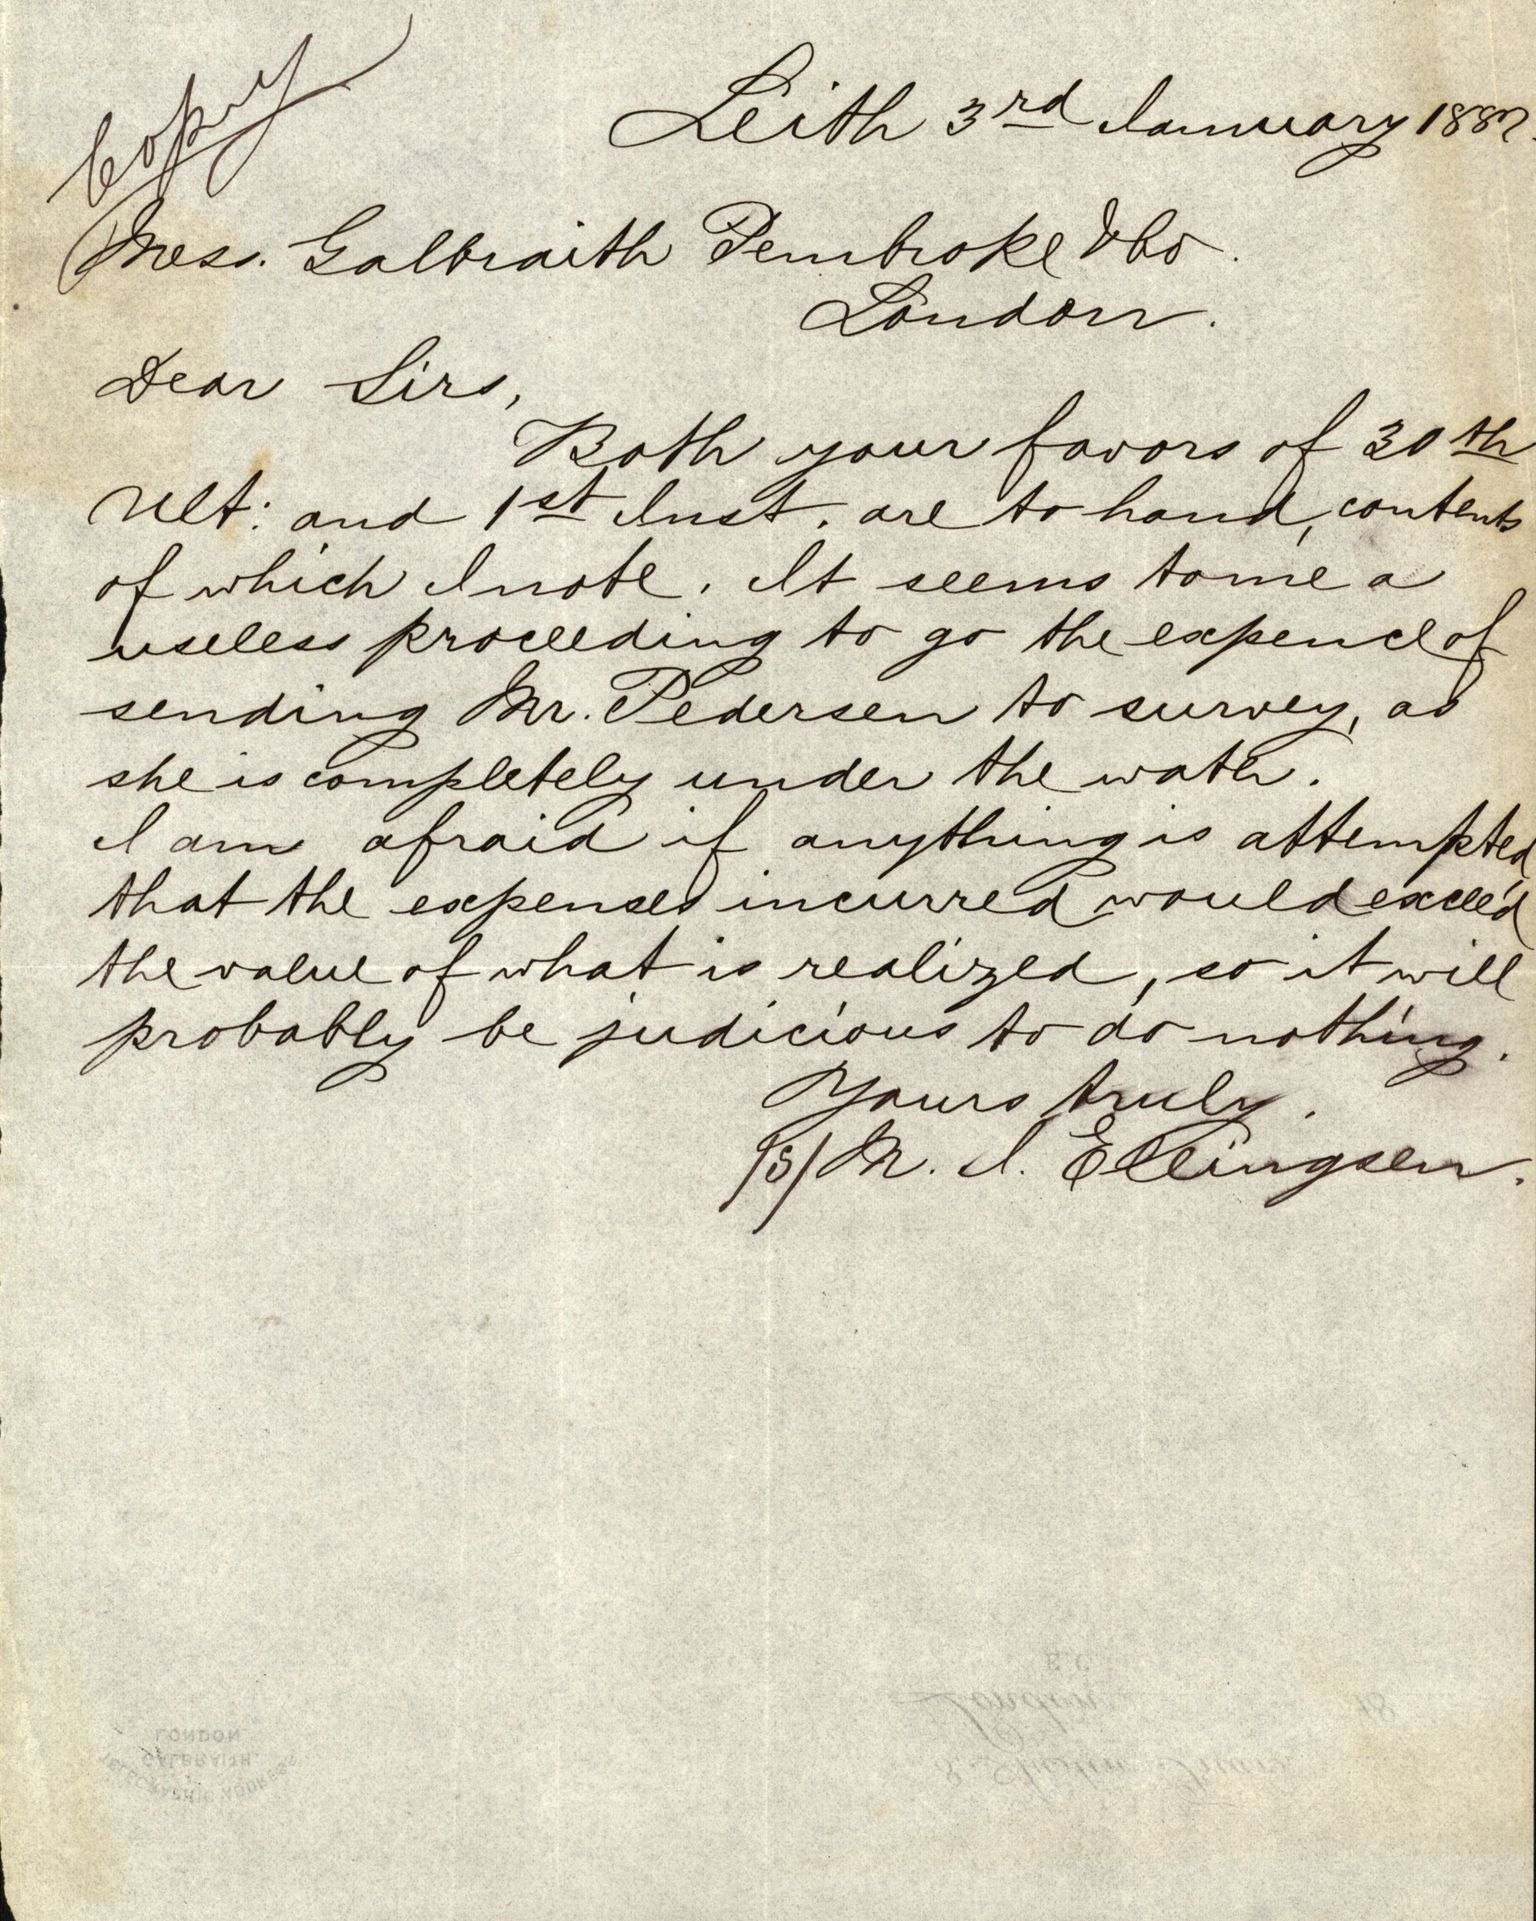 Copy
Leith 3rd January 1887.
Mess. Galbraith Pembroke & Co.
London.
Dear Sirs,
Both your favors of 30th
Ult: and 1st Inst. are to hand, contents
of which I note. It seems to me a
useless proceeding to go the expence of
sending Mr. Pedersen to survey, as
she is completely under the water.
I am afraid if anything is attempted
that the expenses incurred would exceed
the value of what is realized, so it will
probably be judicious to do nothing.
Yours truly.
/S/ M. I. Ellingsen.
E.C.
London
8. Austin Friars
TELEGRAPHIC ADDRESS
GALBRAITH.
LONDON